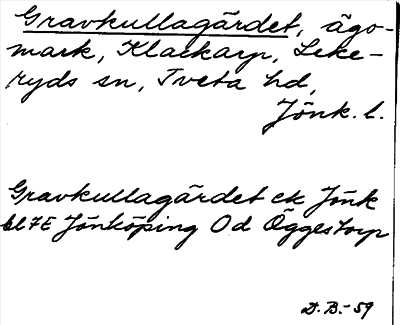 Gravkullagärdet, ägo-
mark, Klackarp, Leke-
ryds sn, Tveta hd,
Jönk. l.
Gravkullagärdet ek Jönk
bl 7E Jönköping Od Öggestorp
D.B.-59